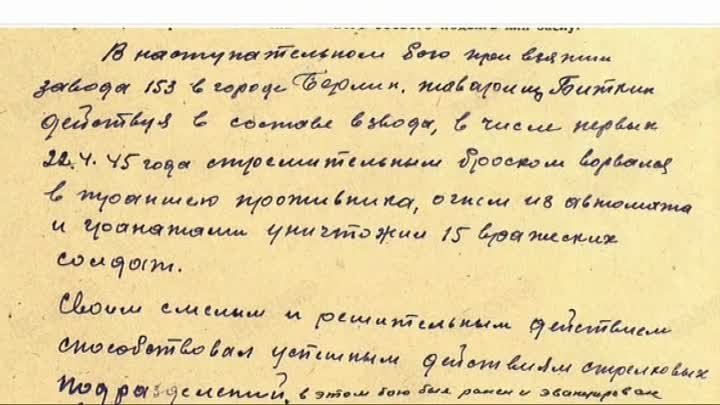 В наступательном бою при взятии
завода 153 в городе Берлин, товарищ Биткин
действуя в составе взвода, в числе первых
22.4.45 года стремительным броском ворвался
в траншею противника, огнем из автомата
и гранатами уничтожил 15 вражеских
солдат.
Своим смелым и решительным действием
способствовал успешным действиям стрелковых
подразделений, в этом бою был ранен и эвакуирован